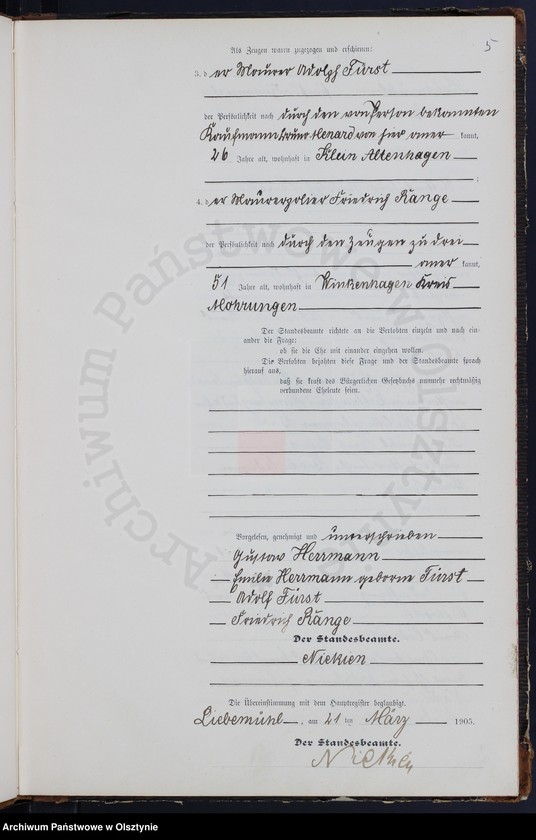 5
Als Zeugen waren zugezogen und erschienen:
3. der Maurer Adolph Fürst
der Persönlichkeit nach durch den von Person bekannten
Kaufmann Henard von hier aner kannt,
26 Jahre alt, wohnhaft in Klein Altenhagen
;
4. der Maurerpolier Friedrich Range
der Persönlichkeit nach durch den Zeugen zu drei
aner kannt,
51 Jahre alt, wohnhaft in Winkenhagen Kreis
Mohrungen
Der Standesbeamte richtete an die Verlobten einzeln und nach ein-
ander die Frage:
ob sie die Ehe mit einander eingehen wollen.
Die Verlobten bejahten diese Frage und der Standesbeamte sprach
hierauf aus,
daß sie kraft des Bürgerlichen Gesetzbuchs nunmehr rechtmäßig
verbundene Eheleute seien.
Vorgelesen, genehmigt und unterschrieben
Gustav Herrmann
Emilie Herrmann geborene Fürst
Adolf Fürst
Friedrich Range
Der Standesbeamte.
Niekien
Die Übereinstimmung mit dem Hauptregister beglaubigt.
Liebemühl, am 21 ten März 1905.
Der Standesbeamte.
Niekien
Archiwum Państwowe w Olsztynie
Archiwum Państwowe w Olsztynie